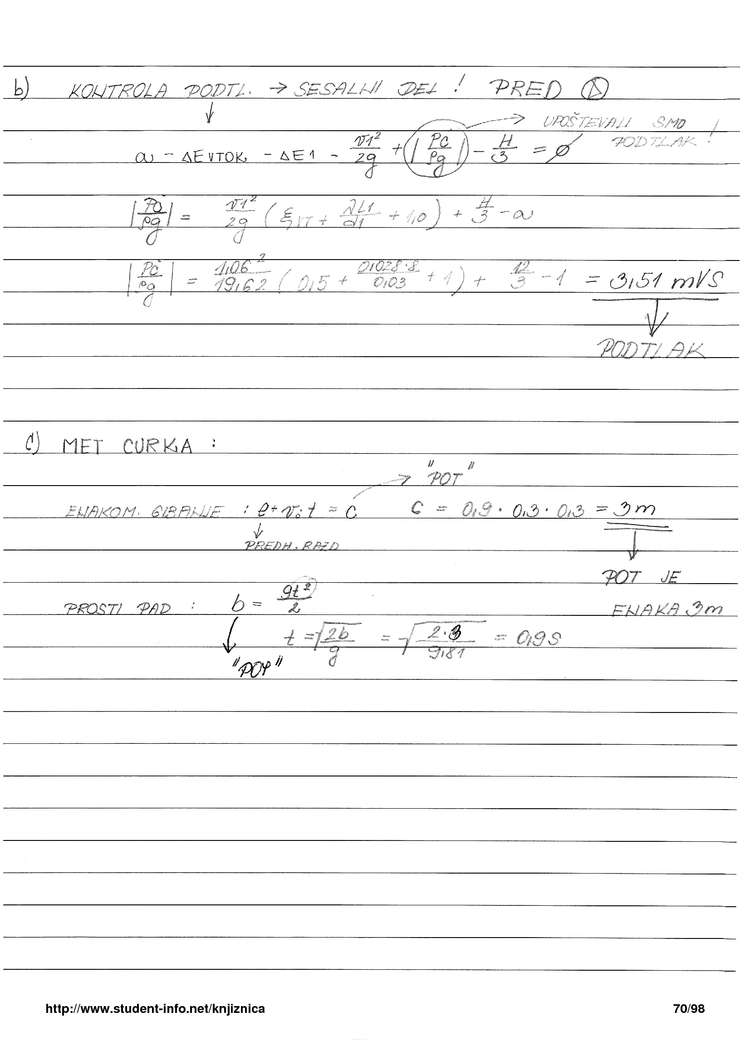 b) KONTROLA PODTL. → SESALNI DEL ! PRED
UPOŠTEVALI SMO PODTLAK !
a - ΔEVTOK - ΔE1 - v1²/2g + (|Pc/ρg|) - H/3 = ø
|Pc/ρg| = v1²/2g (ξVT + λL1/d1 + 1,0) + H/3 - a
|Pc/ρg| = 1,06²/19,62 (0,5 + 0,028·8/0,03 + 1) + 12/3 - 1 = 3,51 mVS
PODTLAK
c) MET CURKA :
"POT"
ENAKOM. GIBANJE : e + v0·t = c c = 0,9 · 0,3 · 0,3 = 3m
PREDH. RAZD
POT JE
PROSTI PAD : b = gt²/2 ENAKA 3m
t = √2b/g = √2·3/9,81 = 0,9s
"POT"
http://www.student-info.net/knjiznica 70/98